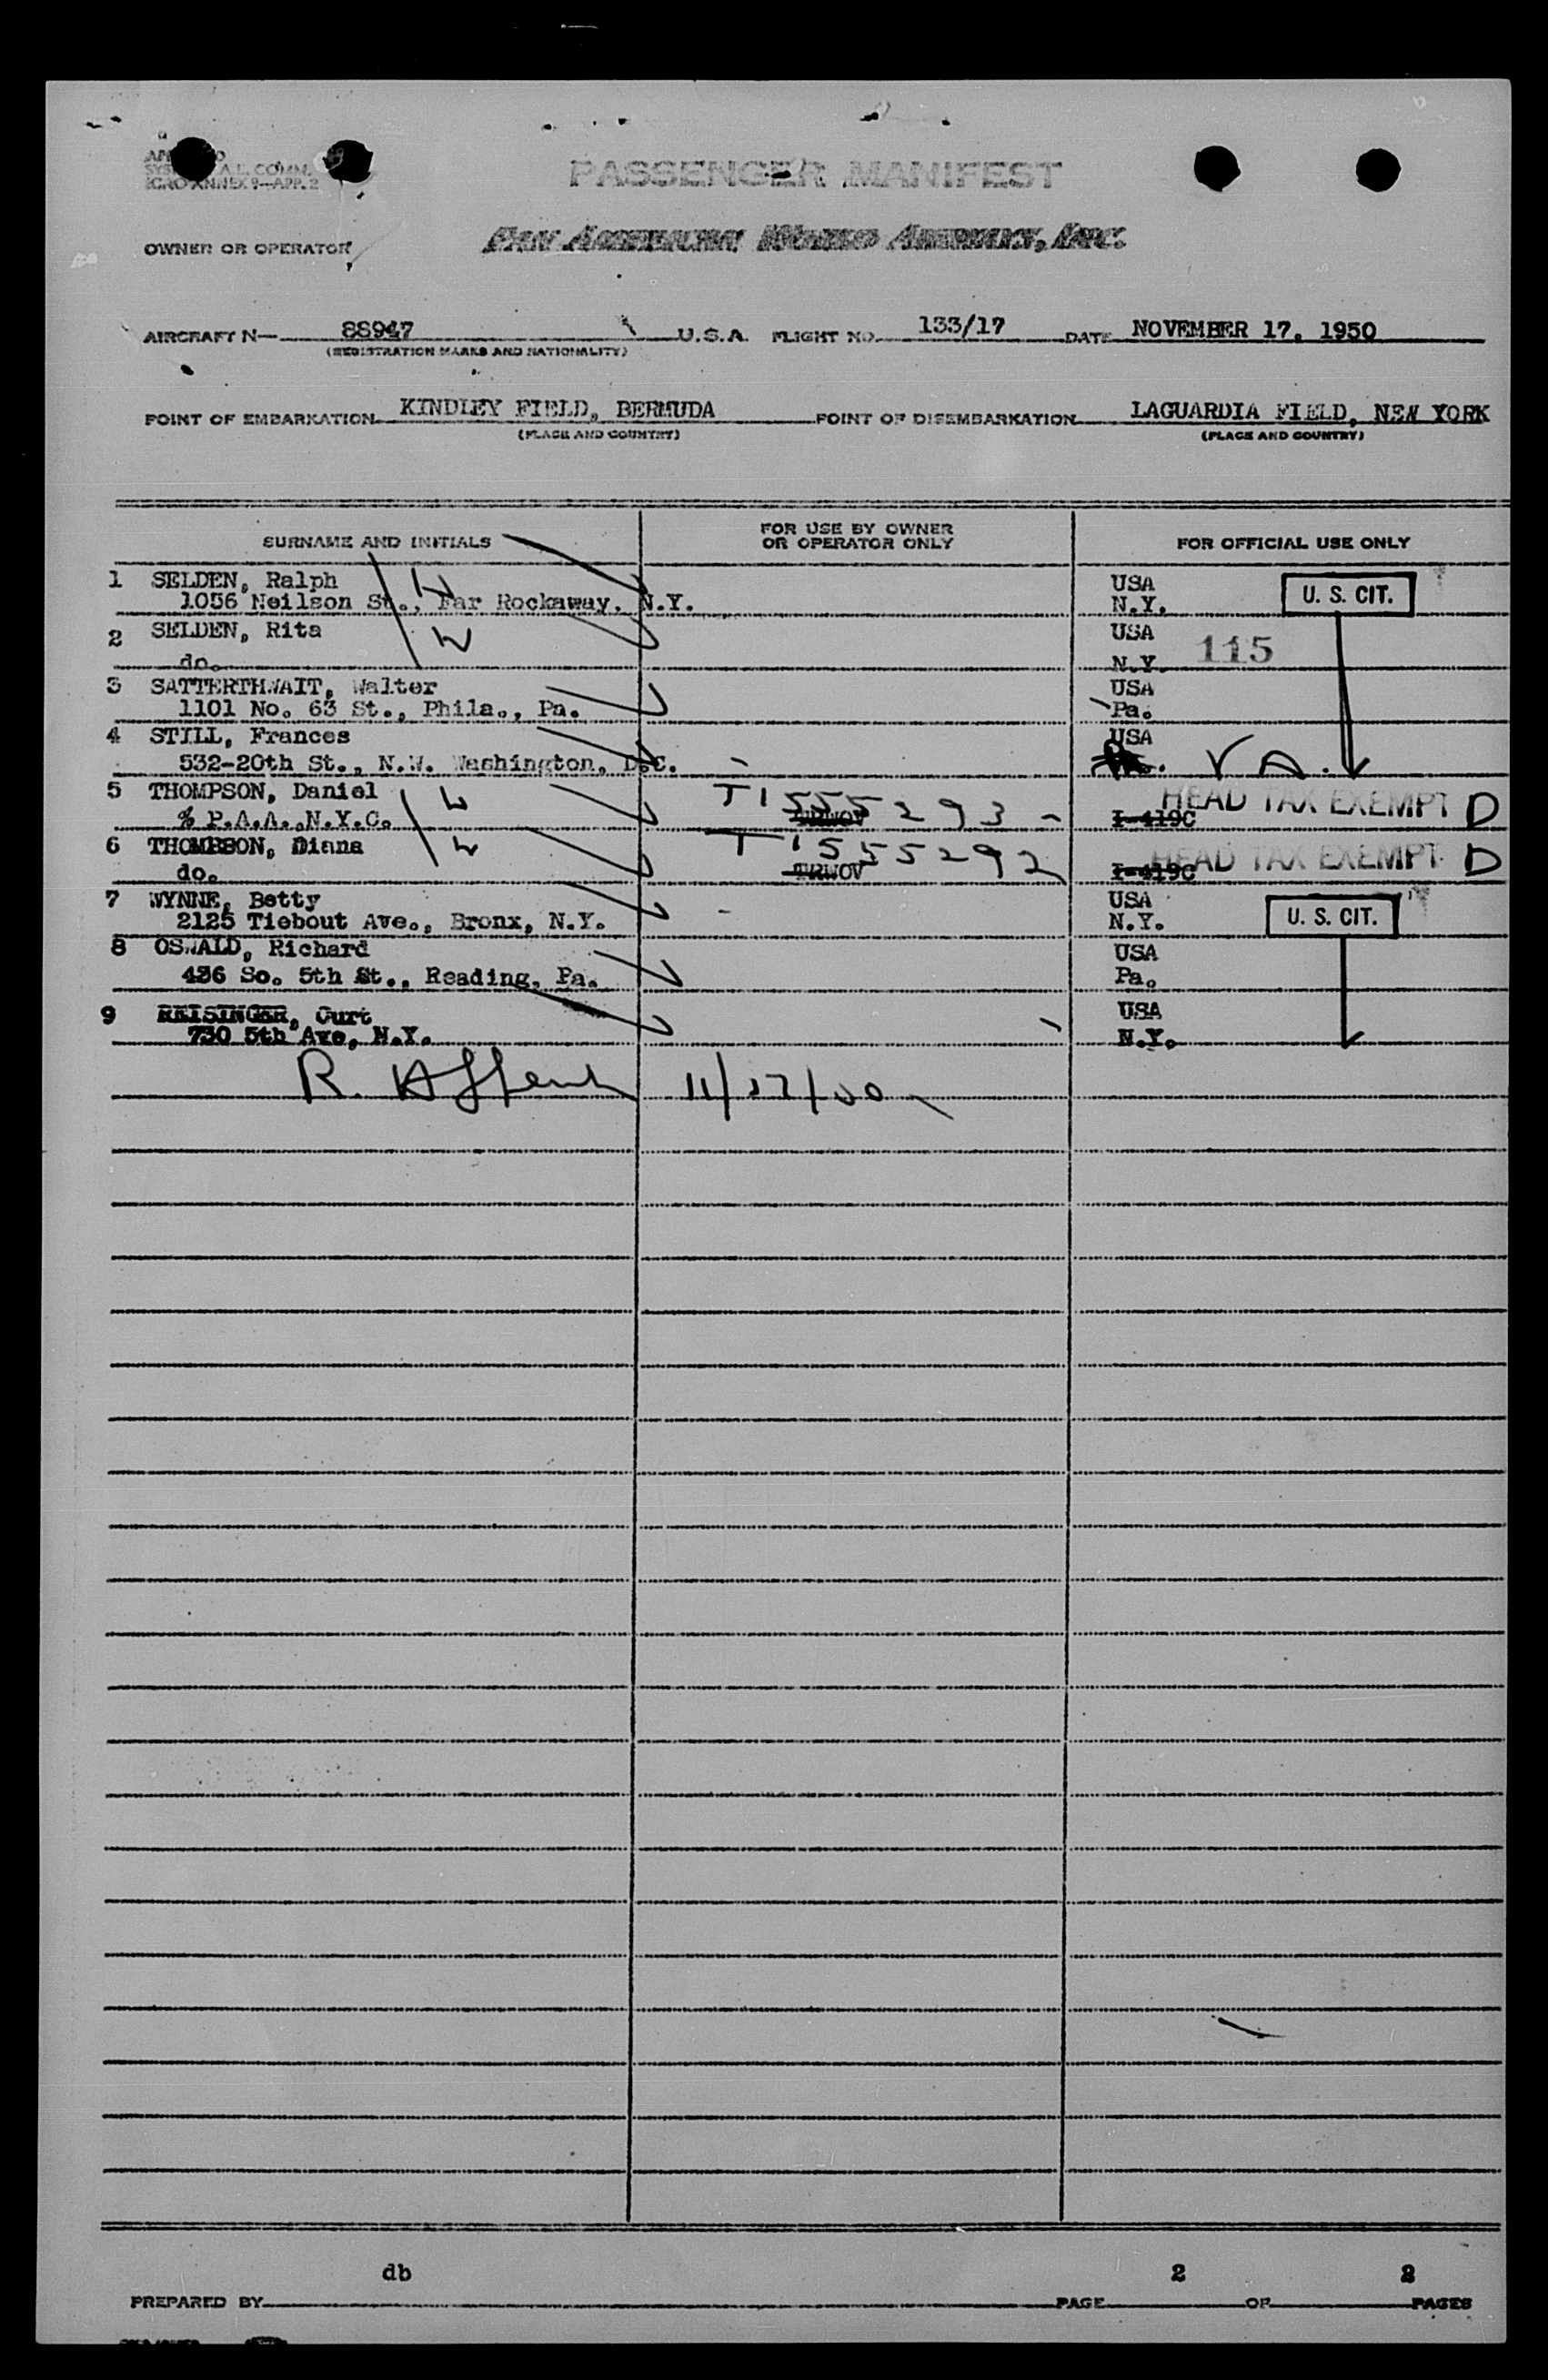 PASSENGER MANIFEST
OWNER OR OPERATOR PAN AMERICAN WORLD AIRWAYS, INC.
AIRCRAFT N— 88947 U.S.A. FLIGHT NO. 133/17 DATE NOVEMBER 17. 1950
(REGISTRATION MARKS AND NATIONALITY)
POINT OF EMBARKATION KINDLEY FIELD, BERMUDA POINT OF DISEMBARKATION LAGUARDIA FIELD, NEW YORK
(PLACE AND COUNTRY) (PLACE AND COUNTRY)
SURNAME AND INITIALS FOR USE BY OWNER OR OPERATOR ONLY FOR OFFICIAL USE ONLY
1 SELDEN, Ralph USA U. S. CIT.
1056 Neilson St., Far Rockaway, N.Y. N.Y.
2 SELDEN, Rita USA 115
do. N.Y.
3 SATTERTHWAIT, Walter USA
1101 No. 63 St., Phila., Pa. Pa.
4 STILL, Frances USA
532-20th St., N.W. Washington, D.C. VA.
5 THOMPSON, Daniel T1555293 HEAD TAX EXEMPT D
% P.A.A.,N.Y.C. TRWOV I-419C
6 THOMPSON, Diana T1555292 HEAD TAX EXEMPT D
do. TRWOV I-419C
7 WYNNE, Betty USA U. S. CIT.
2125 Tiebout Ave., Bronx, N.Y. N.Y.
8 OSWALD, Richard USA
436 So. 5th St., Reading, Pa. Pa.
9 REISINGER, Curt USA
730 5th Ave, N.Y. N.Y.
R. 11/17/50
db 2 2
PREPARED BY PAGE OF PAGES